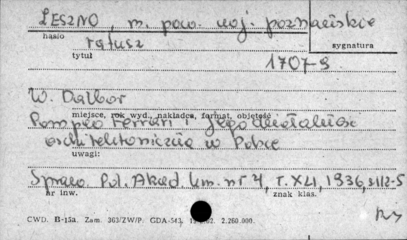 LESZNO, m. pow. woj. poznańskie
hasło
sygnatura
ratusz
tytuł
1707-9
W. Dalbor
miejsce, rok wyd., nakładca, format, objętość
Pompeo Ferrari i jego działalność
architektoniczna w Polsce
uwagi:
Sprawo. Pol. Akad. Um. nr 4, r. XLI, 1936, s. 112-5
nr inw.
znak klas.
CWD. B-15a. Zam. 303/ZW/P. GDA-543, 2.260.000.